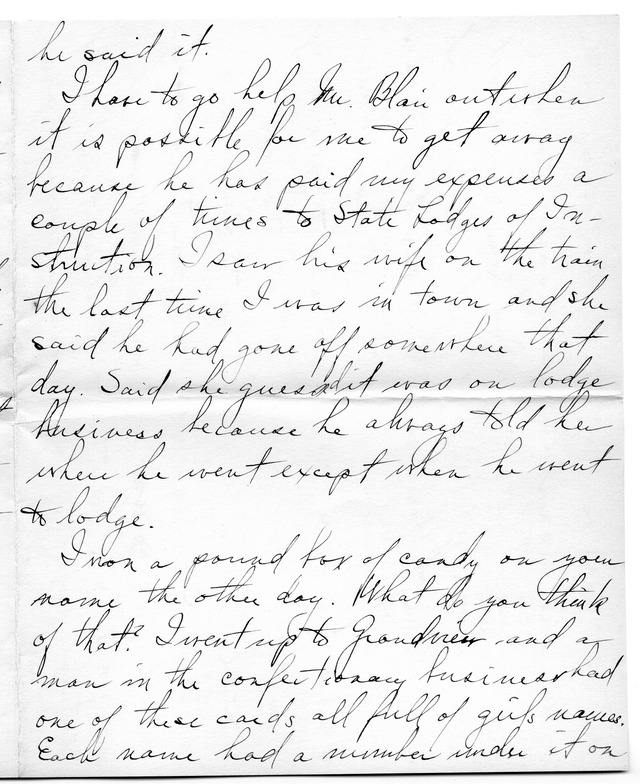 he said it.
I have to go help Mr. Blair out when
it is possible for me to get away
because he has paid my expenses a
couple of times to State Lodges of In-
struction. I saw his wife on the train
the last time I was in town and she
said he had gone off somewhere that
day. Said she guessed it was on lodge
business because he always told her
where he went except when he went
to lodge.
I won a pound box of candy on your
name the other day. What do you think
of that? I went up to Grandview and a
man in the confectionary business had
one of these cards all full of girls names.
Each name had a number under it on